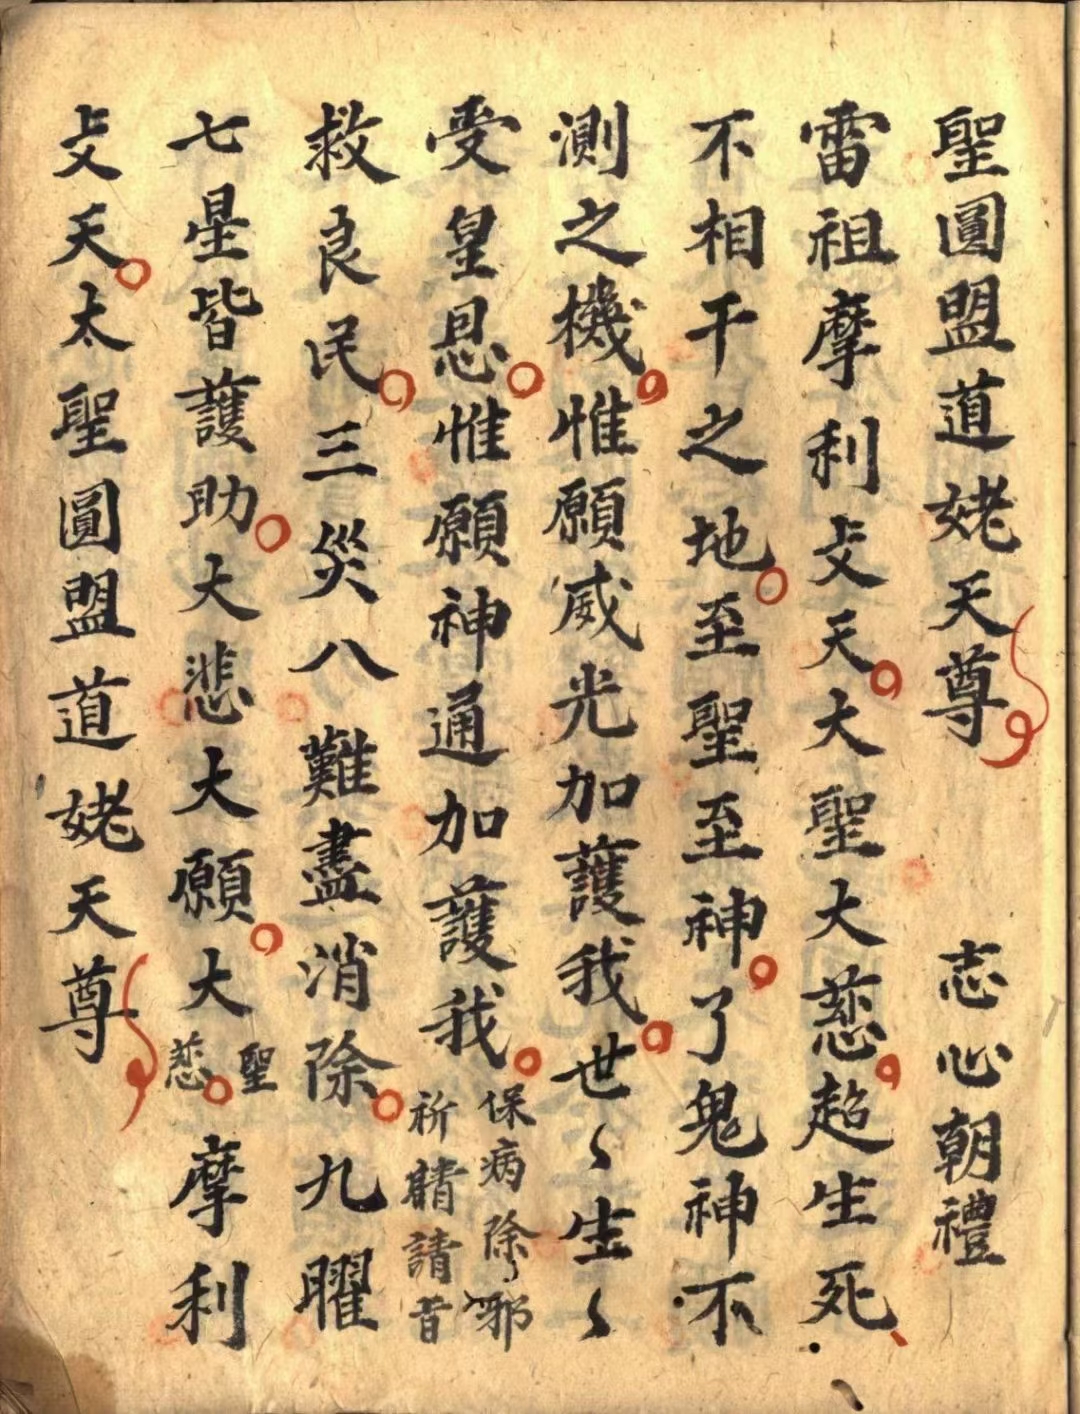 聖圓盟道姥天尊 志心朝禮
雷祖摩利攴天大聖大慈超生死
不相干之地至聖至神了鬼神不
測之機惟願威光加護我世〻生〻
受皇恩惟願神通加護我
保病除邪
祈請昔
救良民三災八難盡消除九曜
七星皆護助大悲大願大
聖
慈
摩利
攴天太聖圓盟道姥天尊